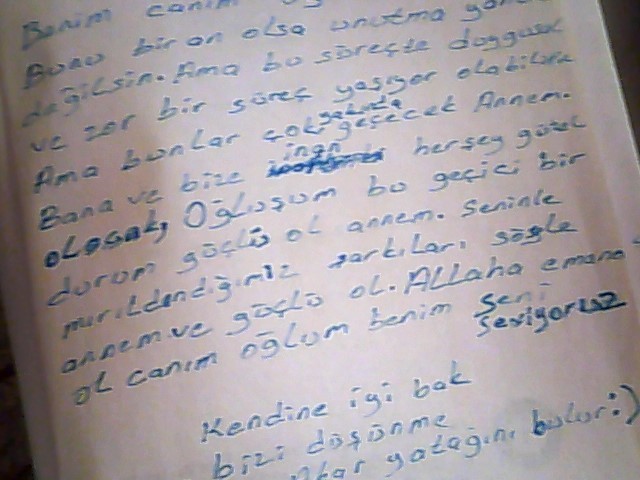 Benim canım
Bunu bir an olsa unutma
değilsin. Ama bu süreçte duygusal
ve zor bir süreç yaşıyor olabilirsin
Ama bunlar çok yakında geçecek Annem.
Bana ve bize inan herşey güzel
olacak, Oğluşum bu geçici bir
durum güçlü ol annem. Seninle
mırıldandığımız şarkıları söyle
annem ve güçlü ol. Allaha emanet
ol canım oğlum benim seni
seviyoruz
Kendine iyi bak
bizi düşünme
yatağını bulur:)